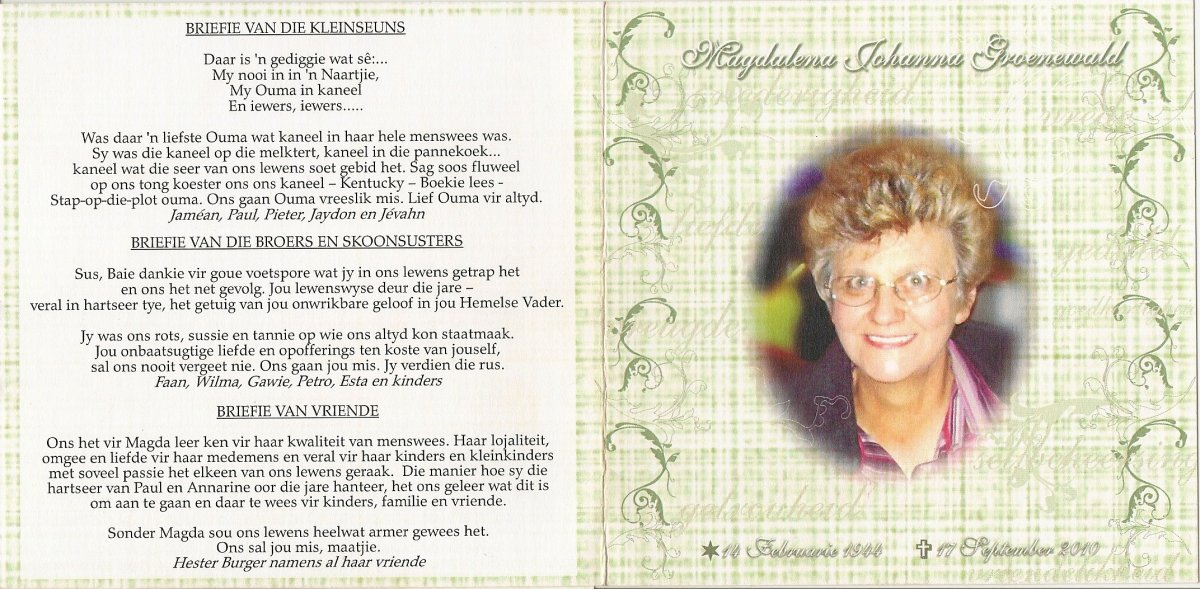 BRIEFIE VAN DIE KLEINSEUNS
Daar is 'n gediggie wat sê:...
My nooi in in 'n Naartjie,
My Ouma in kaneel
En iewers, iewers.....
Was daar 'n liefste Ouma wat kaneel in haar hele menswees was.
Sy was die kaneel op die melktert, kaneel in die pannekoek...
kaneel wat die seer van ons lewens soet gebid het. Sag soos fluweel
op ons tong koester ons ons kaneel – Kentucky – Boekie lees -
Stap-op-die-plot ouma. Ons gaan Ouma vreeslik mis. Lief Ouma vir altyd.
Jaméan, Paul, Pieter, Jaydon en Jévahn
BRIEFIE VAN DIE BROERS EN SKOONSUSTERS
Sus, Baie dankie vir goue voetspore wat jy in ons lewens getrap het
en ons het net gevolg. Jou lewenswyse deur die jare –
veral in hartseer tye, het getuig van jou onwrikbare geloof in jou Hemelse Vader.
Jy was ons rots, sussie en tannie op wie ons altyd kon staatmaak.
Jou onbaatsugtige liefde en opofferings ten koste van jouself,
sal ons nooit vergeet nie. Ons gaan jou mis. Jy verdien die rus.
Faan, Wilma, Gawie, Petro, Esta en kinders
BRIEFIE VAN VRIENDE
Ons het vir Magda leer ken vir haar kwaliteit van menswees. Haar lojaliteit,
omgee en liefde vir haar medemens en veral vir haar kinders en kleinkinders
met soveel passie het elkeen van ons lewens geraak. Die manier hoe sy die
hartseer van Paul en Annarine oor die jare hanteer, het ons geleer wat dit is
om aan te gaan en daar te wees vir kinders, familie en vriende.
Sonder Magda sou ons lewens heelwat armer gewees het.
Ons sal jou mis, maatjie.
Hester Burger namens al haar vriende
Magdalena Johanna Groenewald
nederigheid
vrede
getrouheid
14 Februarie 1944 17 September 2010
vriendelikheid